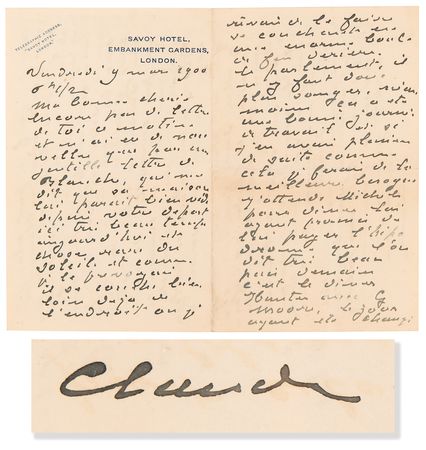 TELEGRAPHIC ADDRESS,
"SAVOY HOTEL,
LONDON."
SAVOY HOTEL,
EMBANKMENT GARDENS,
LONDON.
Vendredi 9 mars 1900
6h 1/2
Ma bonne chérie
encore pas de lettre
de toi ce matin
et n'ai eu de nou
velles que par une
gentille lettre de
Blanche, qui me
dit que sa maison
lui paraît bien vide
depuis votre départ
ici très beau temps
aujourd'hui et
chose rare du
soleil et comme
je le prévoyais
il se couche bien
loin déjà de
l'endroit où j'
rêvais de le faire
se coucher en
une énorme boule
de feu derrière
le parlement, il
n'y faut donc
plus songer,
moins ça a été
une bonne journée
de travail
j'en avais plusieurs
de suite comme
cela je ferais de la
meilleure besogne
j'attends Michel
pour dîner lui
ayant promis de
lui payer l'hippo
drome que l'on
dit très beau
puis demain
c'est le dîner
Hunter avec G
Moore, le jour
ayant été changé
Claude